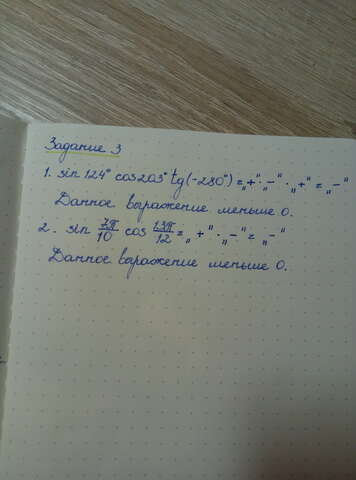 Задание 3
1. sin 124° cos 203° tg(-280°) = „+"·„-"·„+" = „-"
Данное выражение меньше 0.
2. sin 7π/10 cos 13π/12 = „+"·„-" = „-"
Данное выражение меньше 0.